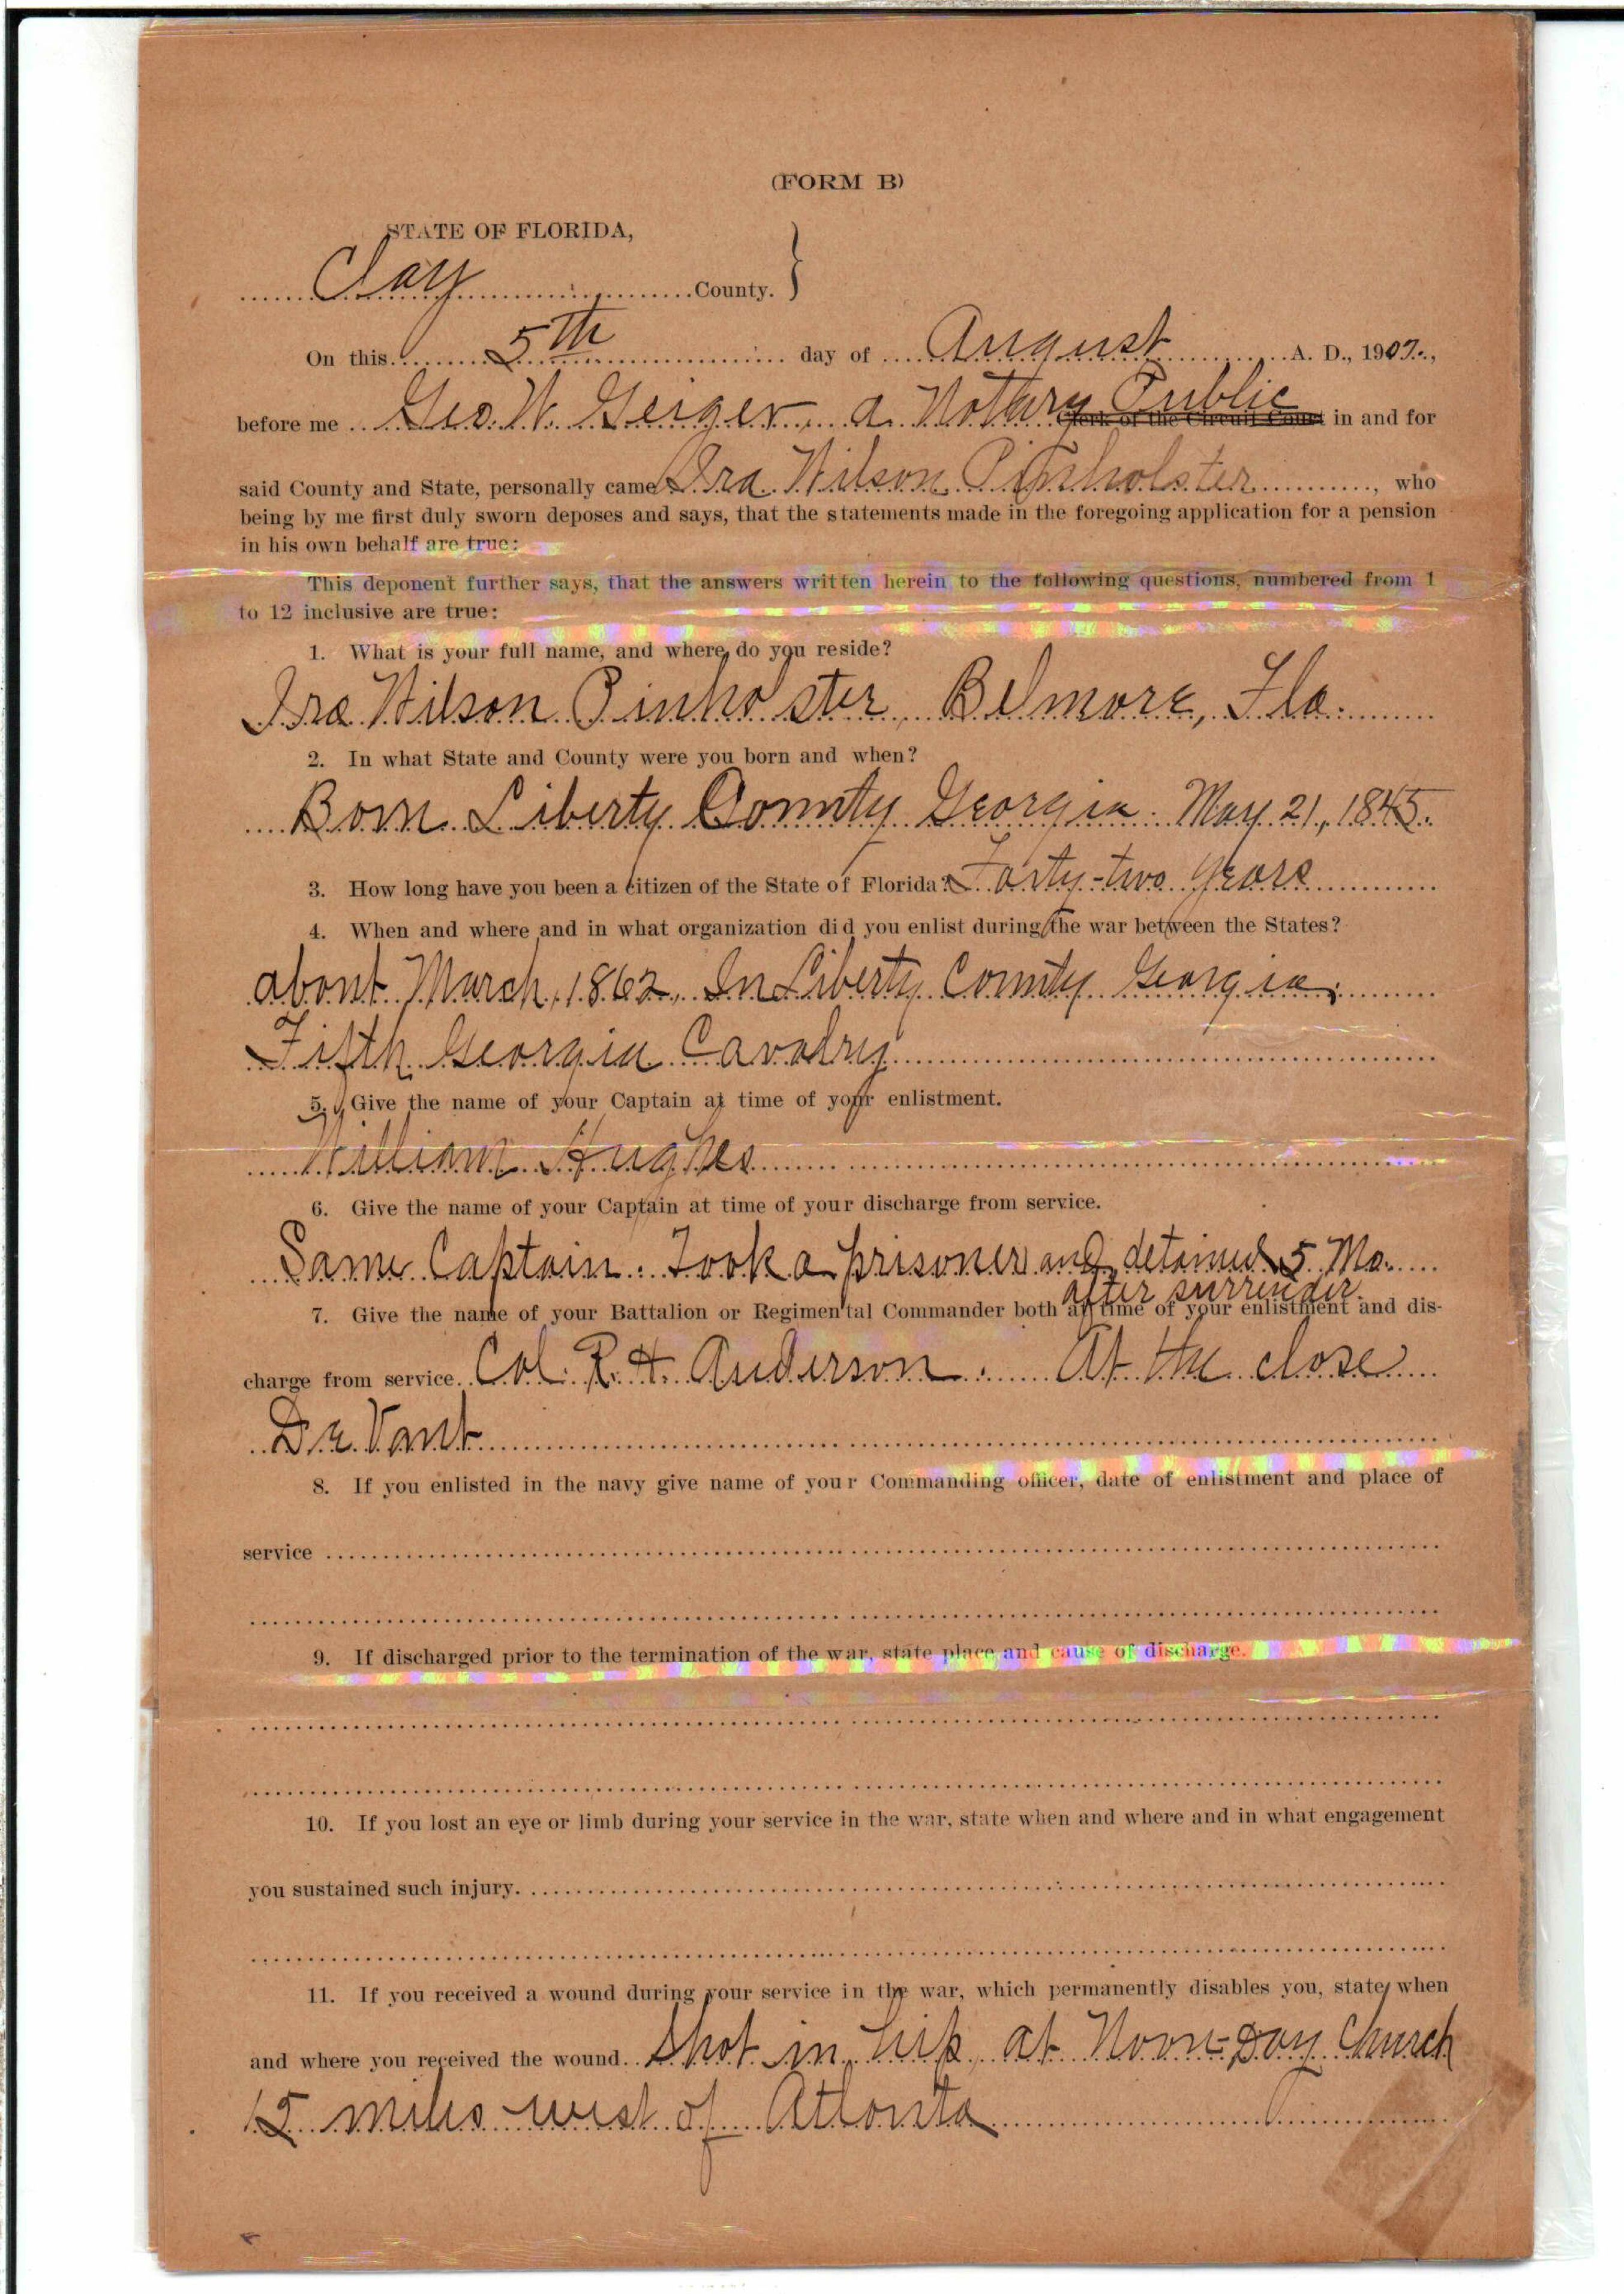 (FORM B)
STATE OF FLORIDA,
Clay County. }
On this 5th day of August A. D., 1907.,
before me Geo. W. Geiger a Notary Public ~~Clerk of the Circuit Court~~ in and for
said County and State, personally came Ira Wilson Pinholster, who
being by me first duly sworn deposes and says, that the statements made in the foregoing application for a pension
in his own behalf are true:
This deponent further says, that the answers written herein to the following questions, numbered from 1
to 12 inclusive are true:
1. What is your full name, and where do you reside?
Ira Wilson Pinholster, Belmore, Fla.
2. In what State and County were you born and when?
Born Liberty County Georgia. May 21, 1845.
3. How long have you been a citizen of the State of Florida? Forty-two years
4. When and where and in what organization did you enlist during the war between the States?
about March, 1862, In Liberty County Georgia,
Fifth Georgia Cavalry
5. Give the name of your Captain at time of your enlistment.
William Hughes
6. Give the name of your Captain at time of your discharge from service.
Same Captain. Took a prisoner and detained 5 Mo.
after surrender.
7. Give the name of your Battalion or Regimental Commander both at time of your enlistment and dis-
charge from service. Col. R. H. Anderson. At the close
De Vant
8. If you enlisted in the navy give name of your Commanding officer, date of enlistment and place of
service
9. If discharged prior to the termination of the war, state place and cause of discharge.
10. If you lost an eye or limb during your service in the war, state when and where and in what engagement
you sustained such injury.
11. If you received a wound during your service in the war, which permanently disables you, state when
and where you received the wound. Shot in hip, at Noon-Day Church
15 miles west of Atlanta